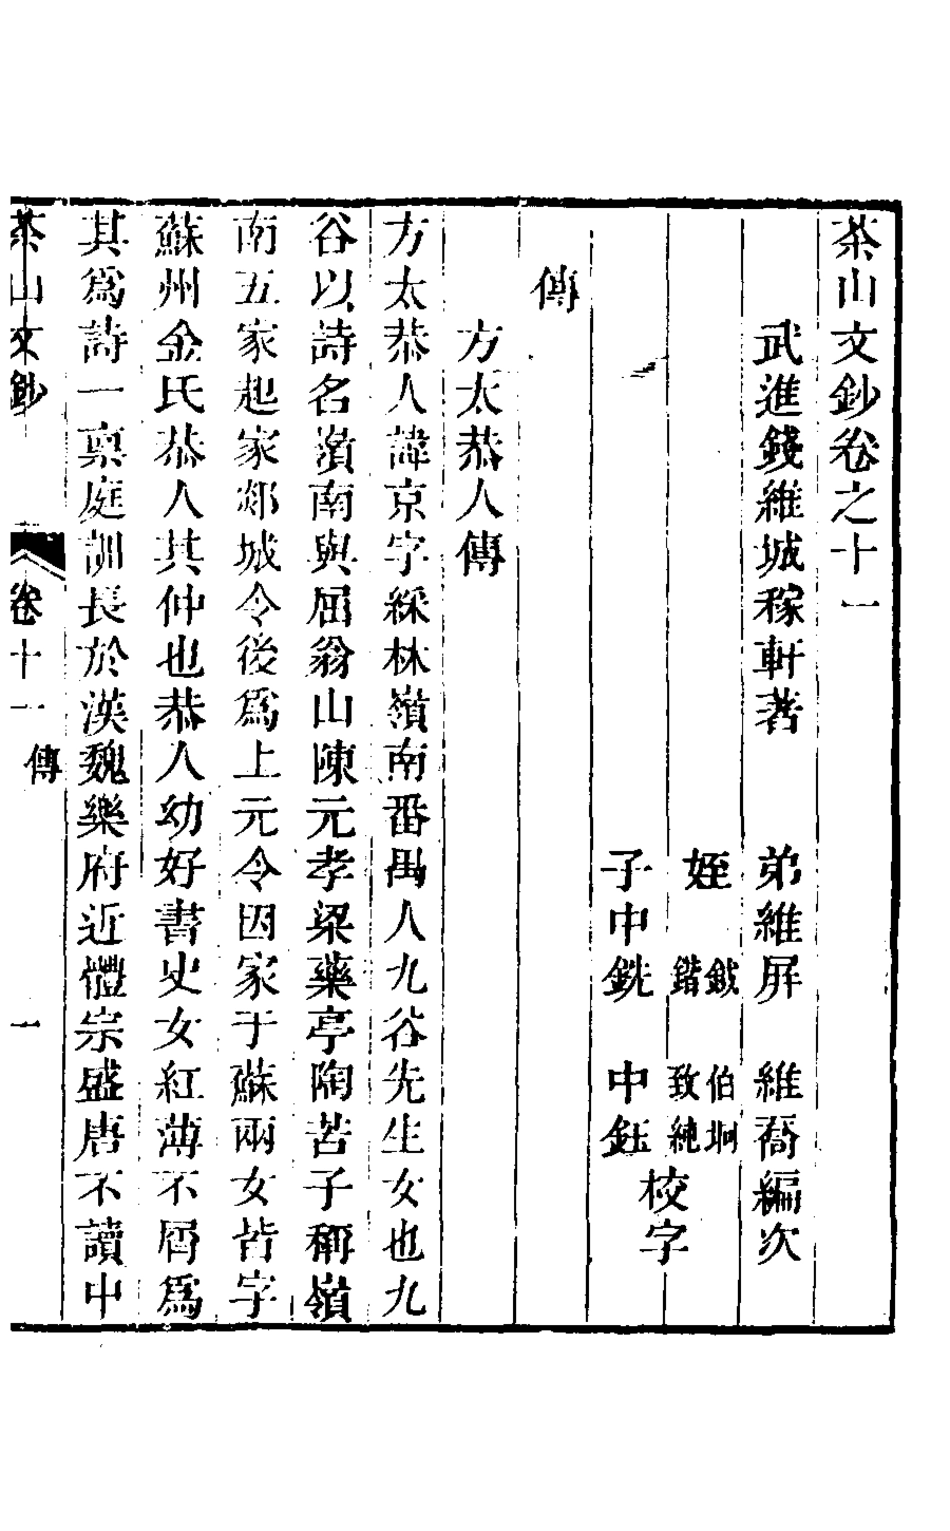 茶山文鈔卷之十一
武進錢維城稼軒著　弟維屏　維喬編次
姪　鈸　伯坰
鍇　致純
子中銑　中鈺
校字
傳
方太恭人傳
方太恭人諱京字綵林嶺南番禺人九谷先生女也九
谷以詩名嶺南與屈翁山陳元孝梁藥亭陶苦子稱嶺
南五家起家郯城令後爲上元令因家于蘇兩女皆字
蘇州金氏恭人其仲也恭人幼好書史女紅薄不屑爲
其爲詩一稟庭訓長於漢魏樂府近體宗盛唐不讀中
茶山文鈔　卷十一　傳　一